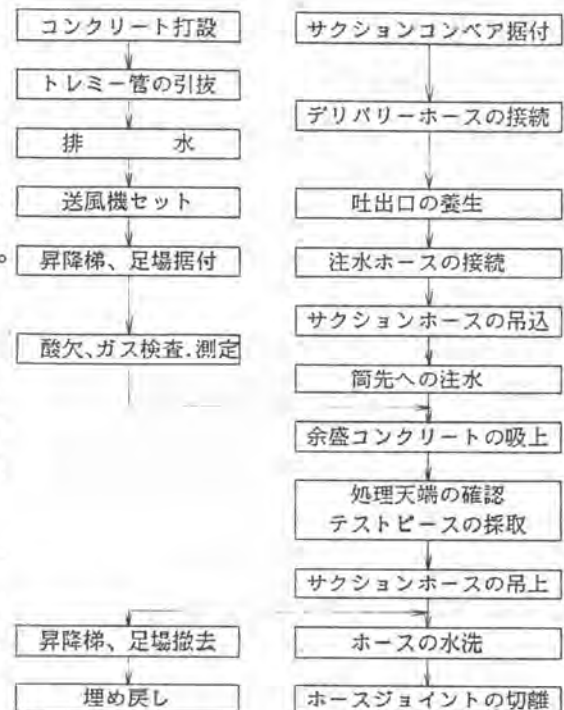 コンクリート打設
トレミー管の引抜
排　　　水
送風機セット
昇降梯、足場据付
酸欠、ガス検査.測定
昇降梯、足場撤去
埋め戻し
サクションコンベア据付
デリバリーホースの接続
吐出口の養生
注水ホースの接続
サクションホースの吊込
筒先への注水
余盛コンクリートの吸上
処理天端の確認
テストピースの採取
サクションホースの吊上
ホースの水洗
ホースジョイントの切離